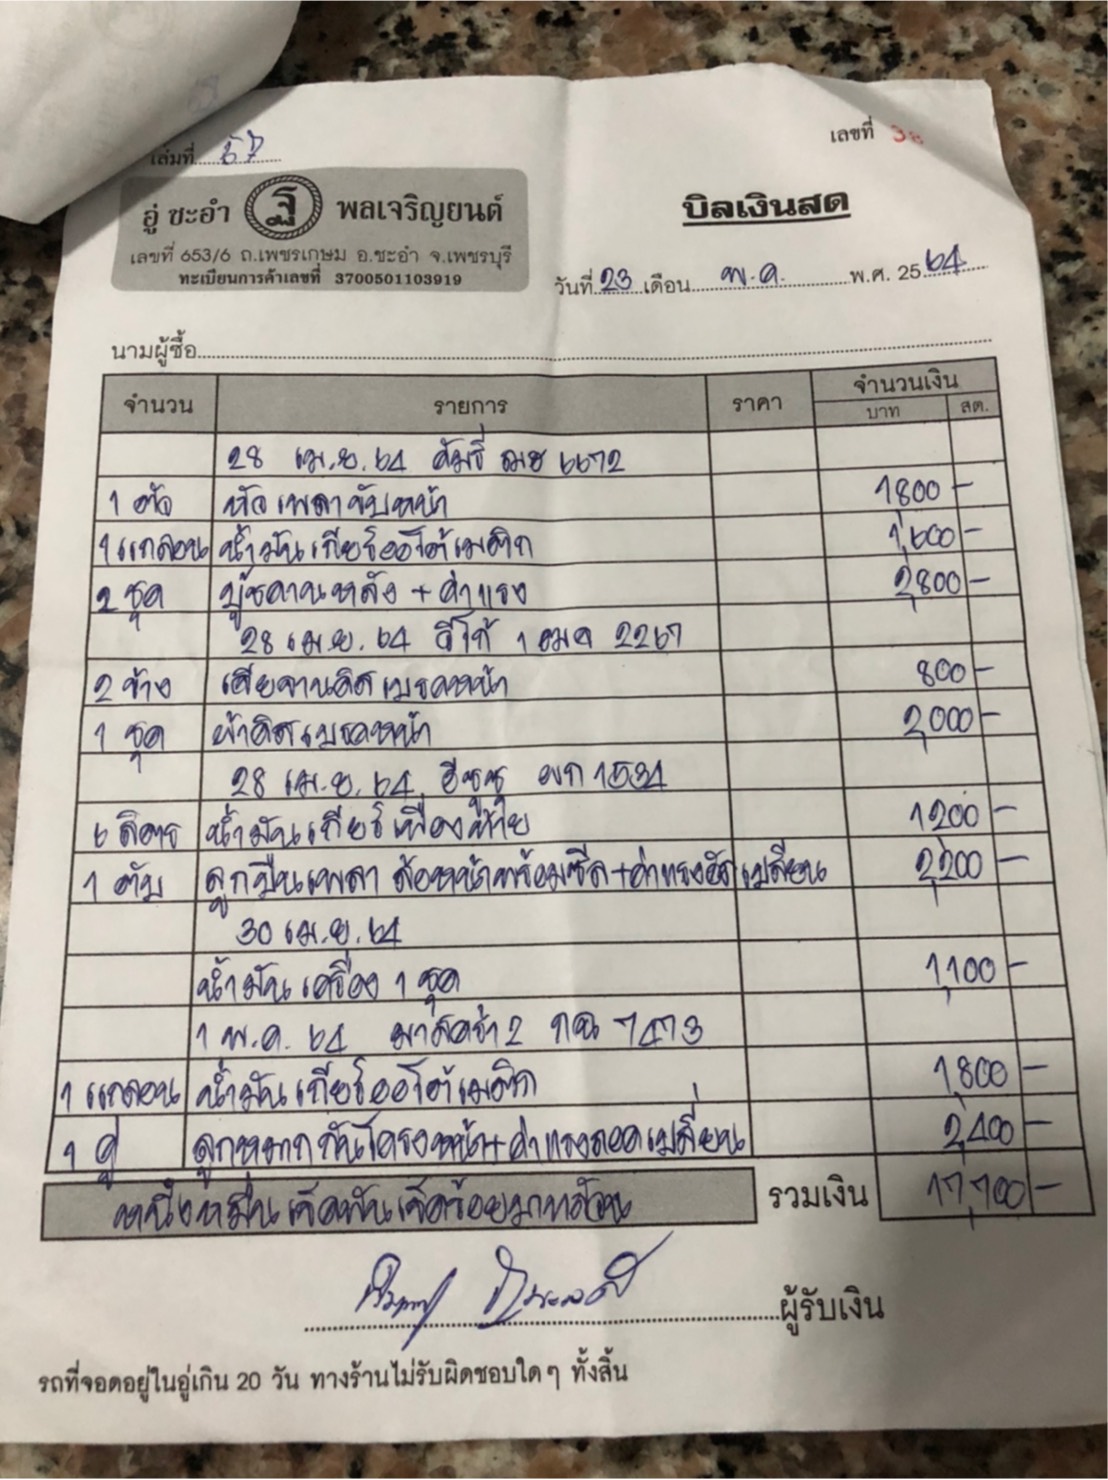 เล่มที่ 67
เลขที่ 38
อู่ ชะอำ ฐ พลเจริญยนต์
บิลเงินสด
เลขที่ 653/6 ถ.เพชรเกษม อ.ชะอำ จ.เพชรบุรี
ทะเบียนการค้าเลขที่ 3700501103919
วันที่ 23 เดือน พ.ค. พ.ศ. 2564
นามผู้ซื้อ
จำนวน รายการ ราคา จำนวนเงิน
บาท สต.
28 เม.ย. 64 คัมรี่ ฌฮ 6672
1 ตัว หัวเพลาขับหน้า 1800 -
1 แกลอน น้ำมันเกียร์ออโต้เมติก 1,600 -
2 ชุด บู๊ชคานหลัง + ค่าแรง 2,800 -
28 เม.ย. 64 วีโก้ 1 ฒค 2267
2 ข้าง เจียจานดิสเบรคหน้า 800 -
1 ชุด ผ้าดิสเบรคหน้า 2,000 -
28 เม.ย. 64 อีซูซุ ผก 1534
6 ลิตร น้ำมันเกียร์เฟืองท้าย 1200 -
1 ตับ ลูกปืนเพลา ล้อหน้าพร้อมซีล + ค่าแรงอัดเปลี่ยน 2,200 -
30 เม.ย. 64
น้ำมันเครื่อง 1 ชุด 1,100 -
1 พ.ค. 64 มาสด้า 2 กฉ 7473
1 แกลอน น้ำมันเกียร์ออโต้เมติก 1,800 -
1 คู่ ลูกหมากกันโครงหน้า + ค่าแรงถอดเปลี่ยน 2,400 -
หนึ่งหมื่นเจ็ดพันเจ็ดร้อยบาทถ้วน รวมเงิน 17,700 -
ผู้รับเงิน
รถที่จอดอยู่ในอู่เกิน 20 วัน ทางร้านไม่รับผิดชอบใดๆ ทั้งสิ้น